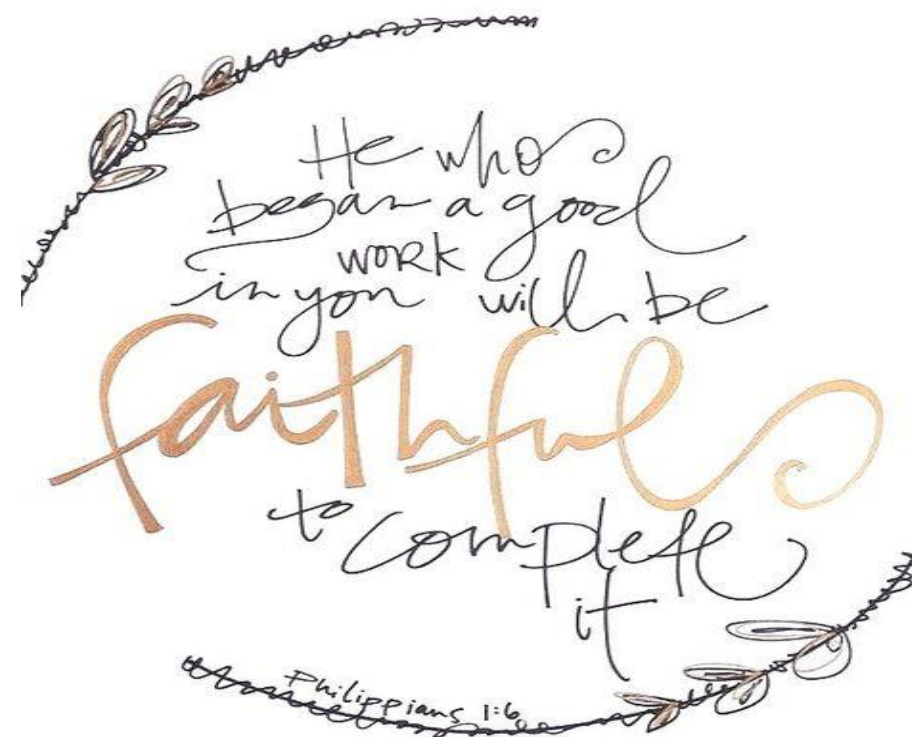 He who
began a good
work
in you will be
faithful
to
complete
it
Philippians 1:6